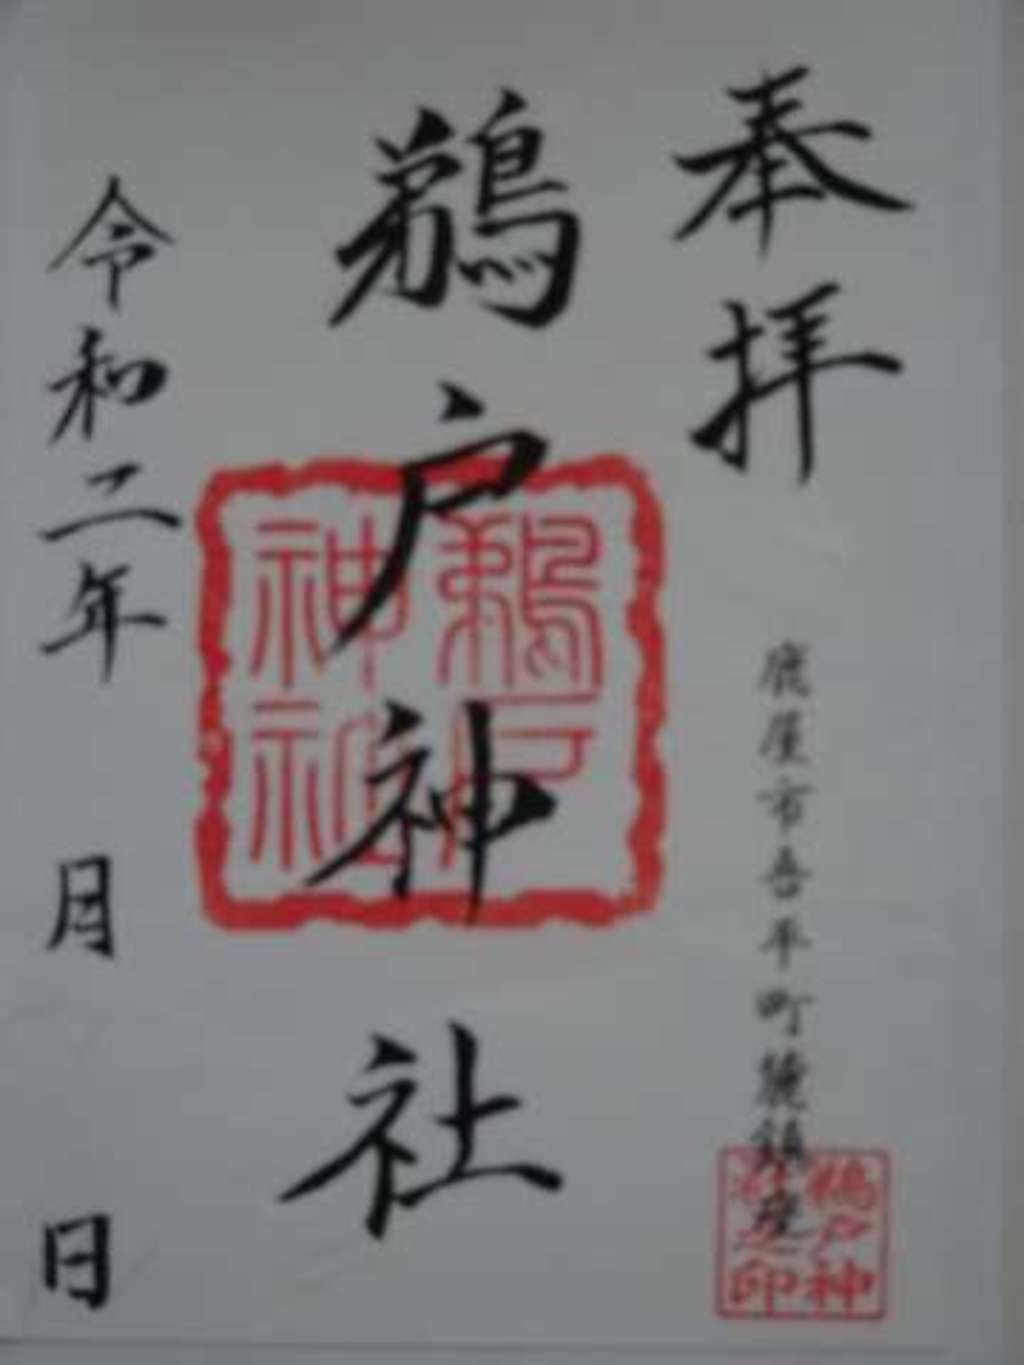 奉拝
鹿屋市吾平町麓鎮座
鵜戸神社
鵜戸
神社
令和二年 月 日
鵜戸神
社之印